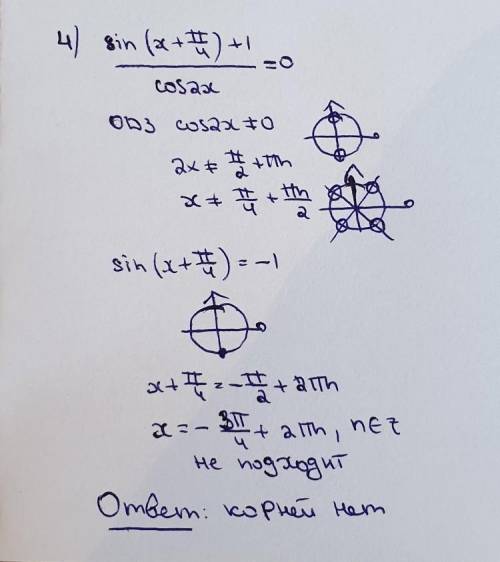 4) (sin(x + π/4) + 1)/cos2x = 0
ОДЗ cos2x ≠ 0
2x ≠ π/2 + πn
x ≠ π/4 + πn/2
sin(x + π/4) = -1
x + π/4 = -π/2 + 2πn
x = -3π/4 + 2πn, n∈Z
не подходит
Ответ: корней нет